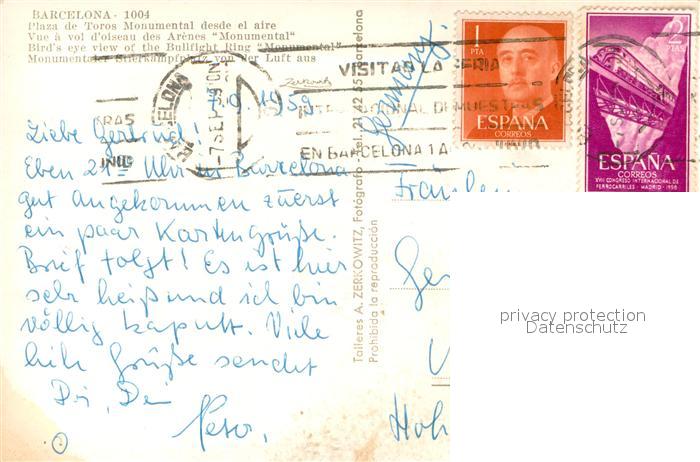 BARCELONA - 1004
Plaza de Toros Monumental desde el aire
Vue à vol d'oiseau des Arènes "Monumental"
Bird's eye view of the Bullfight Ring "Monumental"
Monumental Stierkampfplatz von der Luft aus
7.9.1959
Liebe Gertrud!
Eben 21 Uhr in Barcelona
gut angekommen zuerst
ein paar Kartengrüße.
Brief folgt! Es ist hier
sehr heiß und ich bin
völlig kaputt. Viele
liebe Grüße sendet
Dir, Dein
Talleres A. ZERKOWITZ, Fotógrafo - Tel. 21 42 55 - Barcelona
Prohibida la reproducción
Zerkowitz
Germany
VISITAD LA FERIA
INTERNACIONAL DE MUESTRAS
EN BARCELONA 1 A
1
PTA
ESPAÑA
CORREOS
2
PTAS
ESPAÑA
CORREOS
XVII CONGRESO INTERNACIONAL DE
FERROCARRILES - MADRID - 1958
Fräulein
Ger
Hoh
privacy protection
Datenschutz